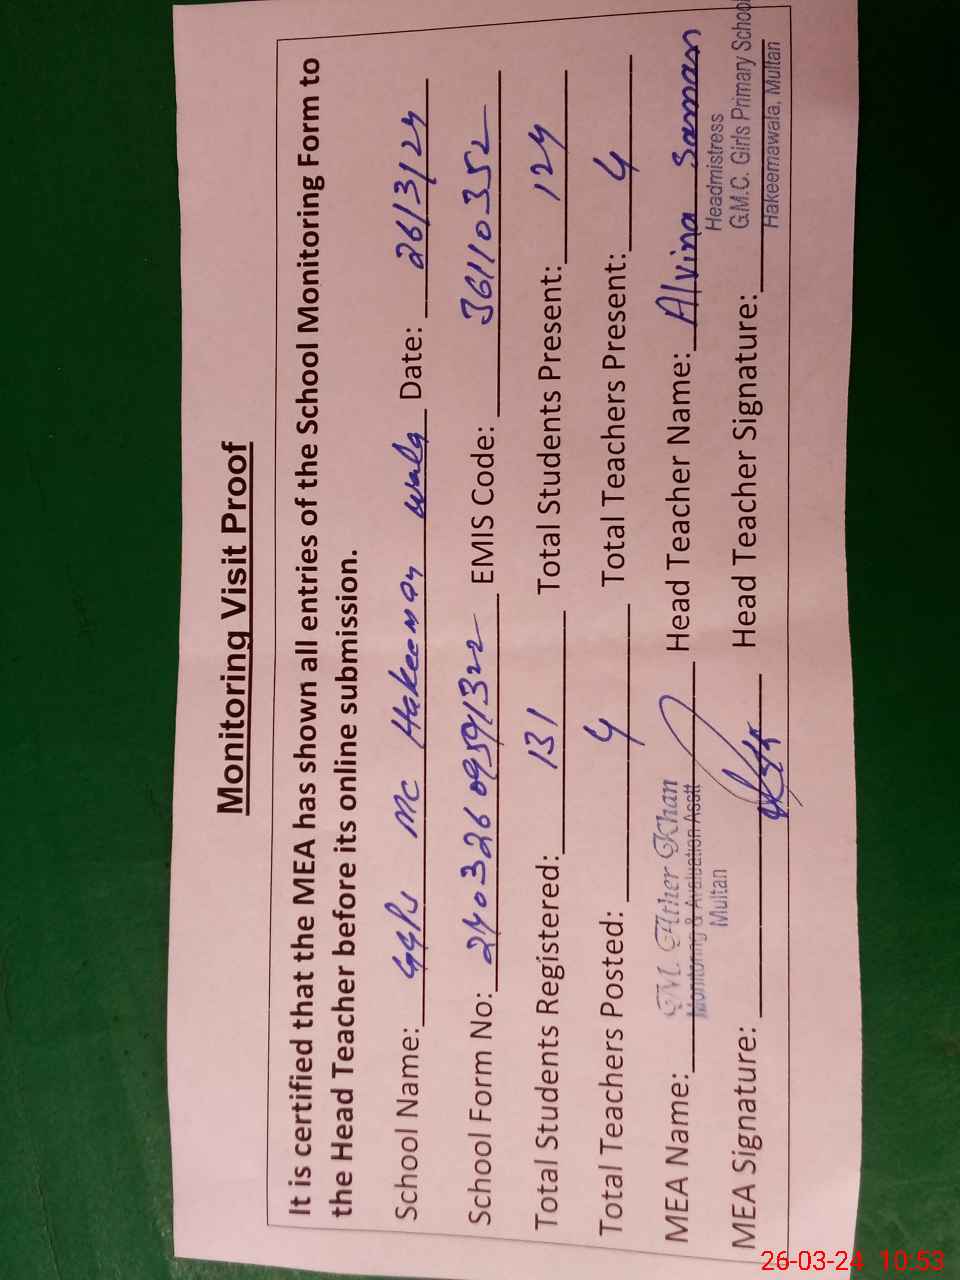 Monitoring Visit Proof
It is certified that the MEA has shown all entries of the School Monitoring Form to
the Head Teacher before its online submission.
School Name: GGPS MC Hakeeman wala Date: 26/3/24
School Form No: 24032609591322 EMIS Code: 36110352
Total Students Registered: 131 Total Students Present: 124
Total Teachers Posted: 4 Total Teachers Present: 4
MEA Name: M. Ather Khan Head Teacher Name: Alvina Saman
Monitoring & Evaluation Asstt
Multan
Headmistress
G.M.C. Girls Primary School
Hakeemawala, Multan
MEA Signature: Head Teacher Signature:
26-03-24 10:53